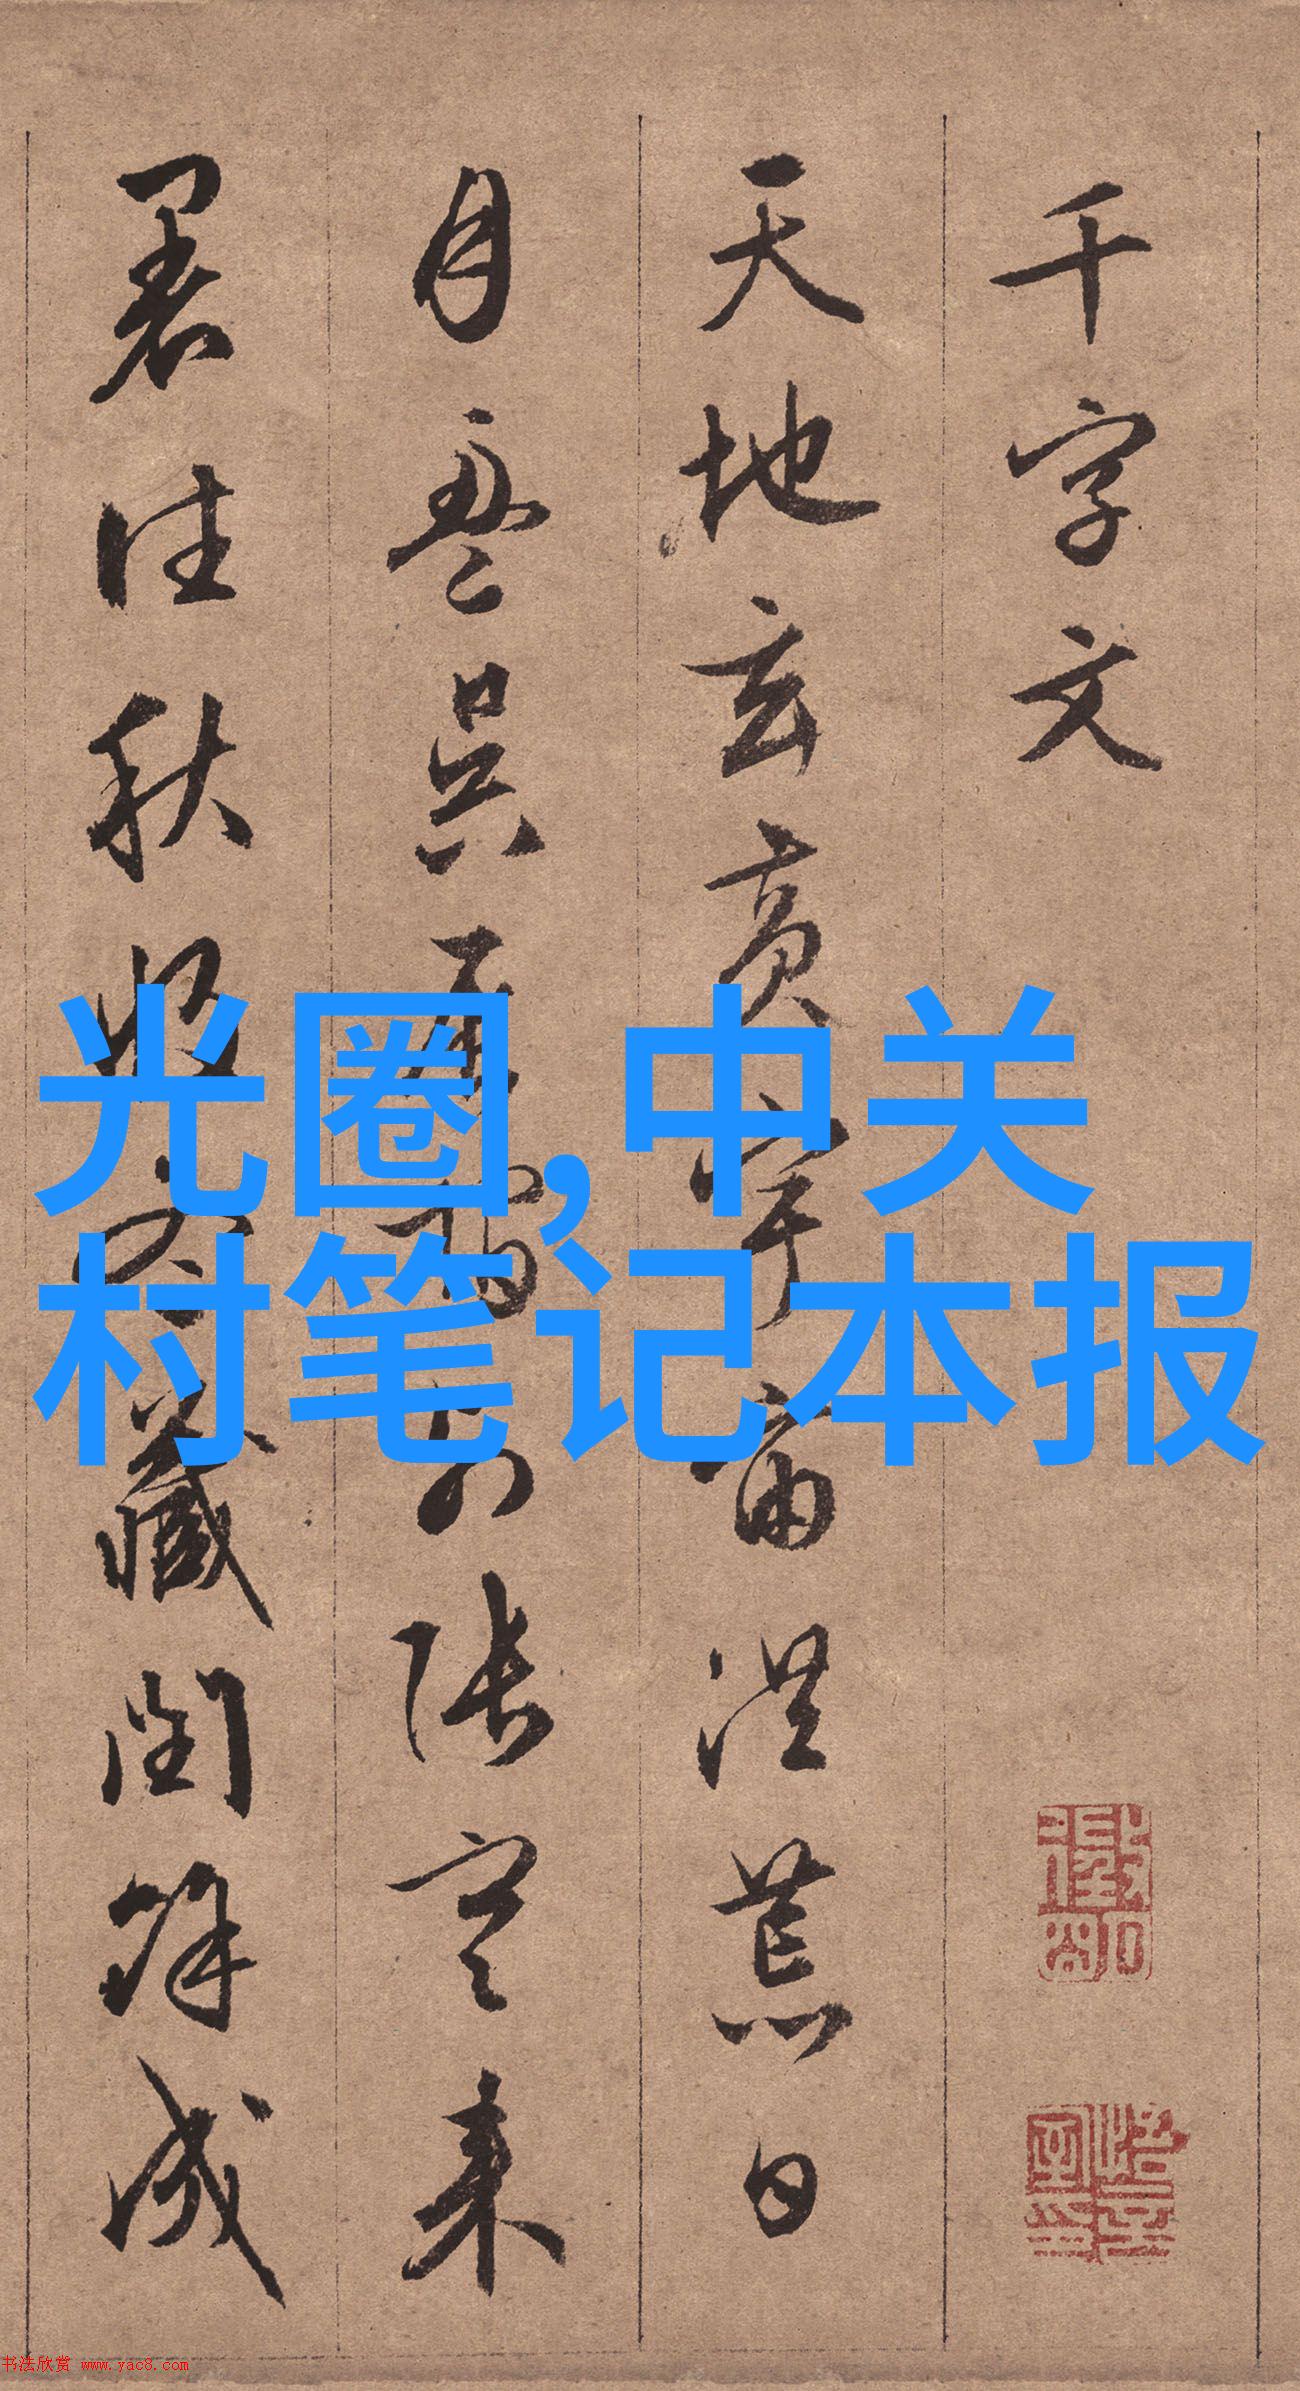 千字文
天地玄黄宇宙洪荒日
月盈昃辰宿列张寒来
暑往秋收冬藏闰余成
光圈,中关
村笔记本报
书法欣赏 www.yac8.com